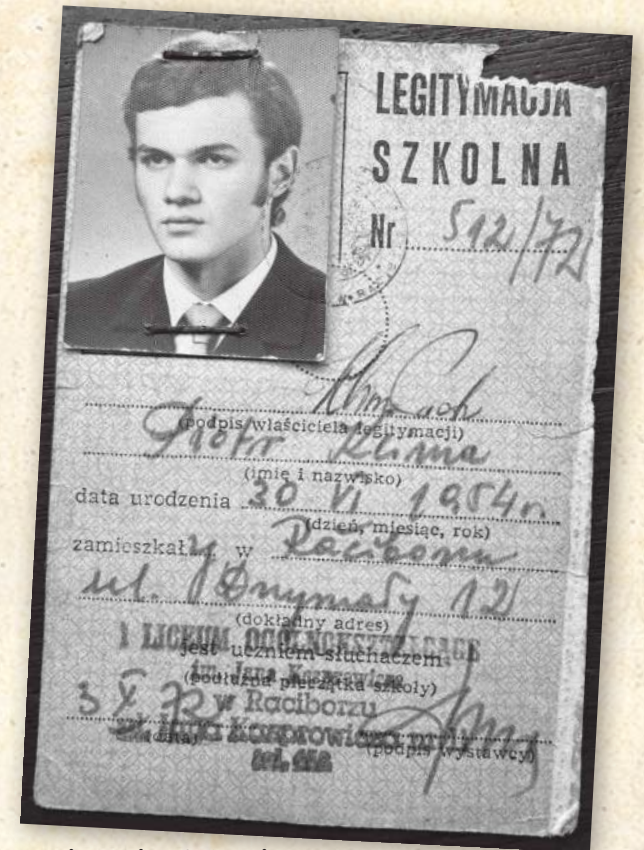 LEGITYMACJA
SZKOLNA
Nr 512/72
(podpis właściciela legitymacji)
Piotr Klima
(imię i nazwisko)
data urodzenia 30 VI 1954 r.
(dzień, miesiąc, rok)
zamieszkały w Raciborzu
ul. Drzymały 12
(dokładny adres)
I LICEUM OGÓLNOKSZTAŁCĄCE
jest uczniem-słuchaczem
im. Jana Kasprowicza
(podłużna pieczątka szkoły)
w Raciborzu
3 X 72
Kasprowicza
(data) (podpis wystawcy)
tel.